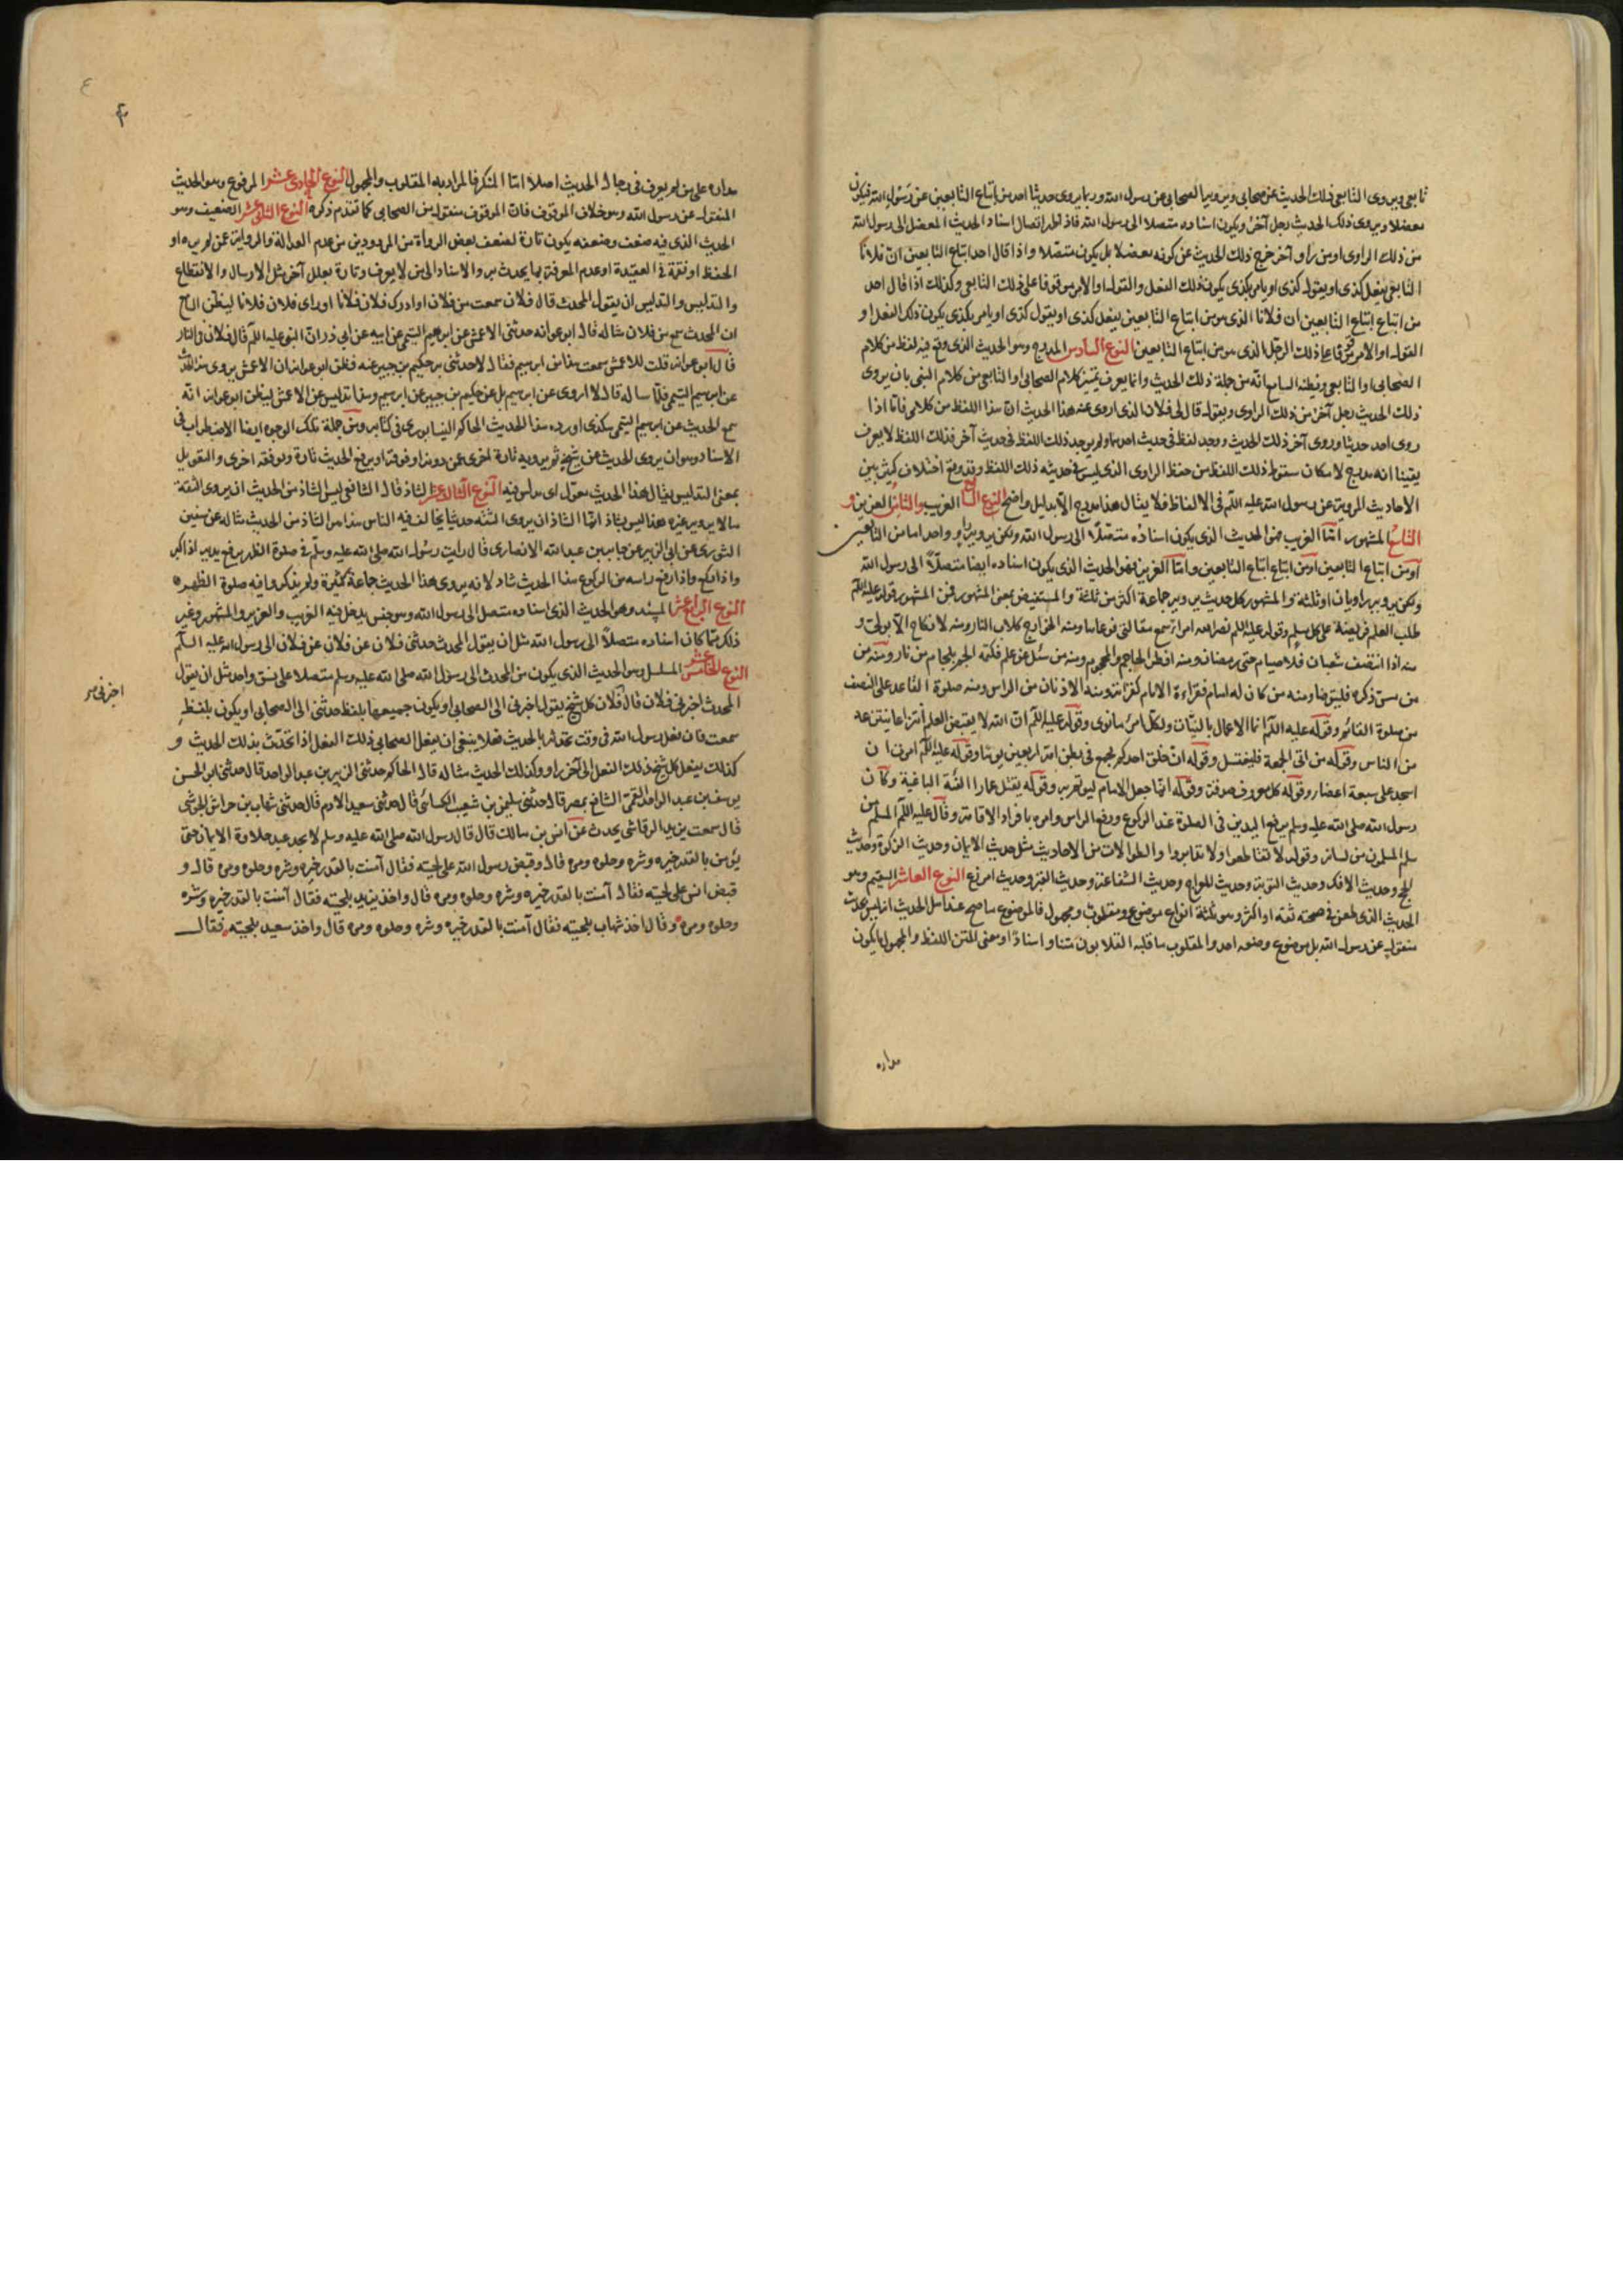 تابعي ويروى التابعي ذلك الحديث عن صحابي ويرويه الصحابي عن رسول الله وربما يروى حديثا احد من اتباع التابعين عن رسول الله فيكون
معضلا ويروى ذلك الحديث رجل آخر ويكون اسناده متصلا الى رسول الله فاذا اتصال اسناد الحديث المعضل الى رسول الله
من ذلك الراوى او من راو آخر خرج ذلك الحديث عن كونه معضلا بل يكون متصلا واذا قال احد اتباع التابعين ان فلانا
التابعي يفعل كذى او يقول كذى او يامر بكذى يكون ذلك الفعل والقول والامر موقوفا على ذلك التابعي وكذلك اذا قال احد
من اتباع اتباع التابعين ان فلانا الذى هو من اتباع التابعين يفعل كذى او يقول كذى او يامر بكذى يكون ذلك الفعل او
القول او الامر موقوفا على ذلك الرجل الذى هو من اتباع التابعين النوع السادس المدرج وهو الحديث الذى وقع فيه لفظ من كلام
الصحابي او التابعي ويظنه السامع انه من جملة ذلك الحديث وانما يعرف تميز كلام الصحابي او التابعي من كلام النبي بان يروى
ذلك الحديث رجل آخر من ذلك الراوى ويقول قال لى فلان الذى اروى عنه هذا الحديث ان هذا اللفظ من كلامى فاما اذا
روى احد حديثا وروى آخر ذلك الحديث ووجد لفظ في حديث احدهما ولم يوجد ذلك اللفظ في حديث آخر فذلك اللفظ لا يعرف
يقينا انه مدرج لامكان سقوط ذلك اللفظ من حفظ الراوى الذى ليس في حديثه ذلك اللفظ وقد وقع اختلاف كثير بين
الاحاديث المروية عن رسول الله عليه السلم في الالفاظ فلا يقال هذا مدرج الا بدليل واضح النوع السابع الغريب والثامن العزيز و
التاسع المشهور اما الغريب فهو الحديث الذى يكون اسناده متصلا الى رسول الله ولكن يرويه راو واحد اما من التابعين
او من اتباع التابعين او من اتباع اتباع التابعين واما العزيز فهو الحديث الذى يكون اسناده ايضا متصلا الى رسول الله
ولكن يرويه راويان او ثلثة والمشهور كل حديث يرويه جماعة اكثر من ثلثة والمستفيض بمعنى المشهور فمن المشهور قوله عليه السلم
طلب العلم فريضة على كل مسلم وقوله عليه السلم نضر الله امرأ سمع مقالتى فوعاها ومنه الخوارج كلاب النار ومنه لا نكاح الا بولى و
منه اذا انتصف شعبان فلا صيام حتى رمضان ومنه افطر الحاجم والمحجوم ومنه من سئل عن علم فكتمه الجم بلجام من نار ومنه من
من مس ذكره فليتوضا ومنه من كان له امام فقراءة الامام قراءته ومنه الاذنان من الراس ومنه صلوة القاعد على النصف
من صلوة القائم وقوله عليه السلم انما الاعمال بالنيات ولكل امرئ ما نوى وقوله عليه السلم ان الله لا يقبض العلم انتزاعا ينتزعه
من الناس وقوله من اتى الجمعة فليغتسل وقوله ان خلق احدكم يجمع في بطن امه اربعين يوما وقوله عليه السلم امرت ان
اسجد على سبعة اعضاء وقوله كل معروف صدقة وقوله انما جعل الامام ليؤتم به وقوله يقتل عمارا الفئة الباغية وكان
رسول الله صلى الله عليه وسلم يرفع اليدين في الصلوة عند الركوع ورفع الراس وامره بافراد الاقامة وقال عليه السلم المسلم من
سلم المسلمون من لسانه وقوله لا تقاطعوا ولا تدابروا والطوالات من الاحاديث مثل حديث الايمان وحديث الزكوة وحديث
الحج وحديث الافك وحديث التوبة وحديث المعراج وحديث الشفاعة وحديث القبر وحديث ام زرع النوع العاشر السقيم وهو
الحديث الذى طعن في صحته ثقة او اكثر وهو ثلثة انواع موضوع ومقلوب ومجهول فالموضوع ما صح عند اهل الحديث انه ليس بحديث
منقول عن رسول الله بل موضوع وضعه احد والمقلوب ما قلبه القلابون متنا واسنادا او معنى المتن اللفظ والمجهول ما يكون
مداره
٤
مداره على من لم يعرف في رجال الحديث اصلا اما المنكر فالمراد به المقلوب والمجهول النوع الحادى عشر المرفوع وهو الحديث
المنقول عن رسول الله وهو خلاف الموقوف فان الموقوف منقول من الصحابي كما تقدم ذكره النوع الثانى عشر الضعيف وهو
الحديث الذى فيه ضعف وضعفه يكون تارة لضعف بعض الرواة من المردودين من عدم العدالة والرواية عن لم يره او
الحفظ او تهمة في العقيدة او عدم المعرفة بما يحدث به والاسناد الى من لا يعرف وتارة بعلل آخر مثل الارسال والانقطاع
والتدليس والتدليس ان يقول المحدث قال فلان سمعت من فلان او ادرك فلان فلانا او راى فلان فلانا ليظن السامع
ان المحدث سمع من فلان مثاله قال ابو عوانه حدثنى الاعمش عن ابرهيم التيمى عن ابيه عن ابي ذر ان النبى عليه السلم قال فلان في النار
قال ابو عوانه قلت للاعمش سمعت هذا من ابرهيم فقال لا حدثنى به حكيم بن جبير عنه فظن ابو عوانه ان الاعمش يروى هذا الحديث
عن ابرهيم التيمى فلما ساله قال لا اروى عن ابرهيم بل عن حكيم بن جبير عن ابرهيم وهذا تدليس عن الاعمش ليظن ابو عوانه انه
سمع الحديث عن ابرهيم التيمى هكذى اورده هذا الحديث الحاكم النيسابورى في كتابه ومن جملة تلك الوجوه ايضا الاضطراب في
الاسناد وهو ان يروى الحديث عن شيخ ثم يرويه تارة اخرى عمن دونه او فوقه او يرفع الحديث تارة ويوقفه اخرى والتعويل
بمعنى التدليس يقال هذا الحديث معول اى مدلس فيه النوع الثالث عشر الشاذ قال الشافعى ليس الشاذ من الحديث ان يروى الثقة
ما لا يرويه غيره هذا ليس بشاذ انما الشاذ ان يروى الثقة حديثا يخالف فيه الناس هذا هو الشاذ من الحديث مثاله عن سفين
الثورى عن ابي الزبير عن جابر بن عبد الله الانصارى قال رايت رسول الله صلى الله عليه وسلم في صلوة الظهر يرفع يديه اذا كبر
واذا ركع واذا رفع راسه من الركوع هذا الحديث شاذ لانه يروى هذا الحديث جماعة كثيرة ولم يذكروا فيه صلوة الظهر
النوع الرابع عشر المسند وهو الحديث الذى اسناده متصل الى رسول الله وهو جنس يدخل فيه الغريب والعزيز والمشهور وغير
ذلك مما كان اسناده متصلا الى رسول الله مثل ان يقول المحدث حدثنى فلان عن فلان عن فلان الى رسول الله عليه السلم
النوع الخامس عشر المسلسل وهو الحديث الذى يكون من المحدث الى رسول الله صلى الله عليه وسلم متصلا على نسق واحد مثل ان يقول
المحدث اخبرنى فلان قال فلان كل شيخ يقول اخبرنى الى الصحابي او يكون جميعها بلفظ حدثنى الى الصحابي او يكون بلفظ
سمعت فان فعل رسول الله في وقت تحدثه بالحديث فعلا ينبغى ان يفعل الصحابي ذلك الفعل اذا تحدث بذلك الحديث و
كذلك يفعل كل شيخ ذلك الفعل الى آخر راو وكذلك الحديث مثاله قال الحاكم حدثنى الزبير بن عبد الواحد قال حدثنى ابو الحسن
يوسف بن عبد الاحد القمى الشافعى بمصر قال حدثنى سليمن بن شعيب الكسائى قال حدثنى سعيد الادم قال حدثنى شهاب بن خراش الحوشبى
قال سمعت يزيد الرقاشى يحدث عن انس بن مالك قال قال رسول الله صلى الله عليه وسلم لا يجد عبد حلاوة الايمان حتى
يؤمن بالقدر خيره وشره وحلوه ومره قال وقبض رسول الله على لحيته فقال آمنت بالقدر خيره وشره وحلوه ومره قال و
قبض انس على لحيته فقال آمنت بالقدر خيره وشره وحلوه ومره قال واخذ يزيد بلحيته فقال آمنت بالقدر خيره وشره
وحلوه ومره وقال اخذ شهاب بلحيته فقال آمنت بالقدر خيره وشره وحلوه ومره قال واخذ سعيد بلحيته فقال